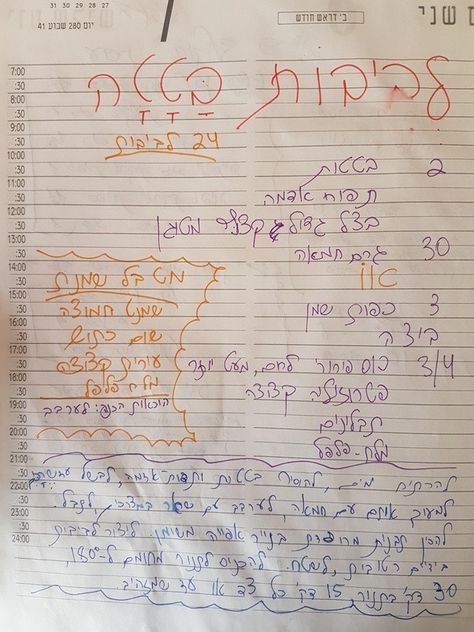 31 30 29 28 27
יום 280 שבוע 41
ב' דראש חודש
שני
לביבות בטטה
24 לביבות
2 בטטות
תפוח אדמה
בצל גדול קצוץ מטוגן
30 גרם חמאה
או
3 כפות שמן
ביצה
3/4 כוס פירורי לחם, מעט יותר
פטרוזיליה קצוצה
תבלינים
מלח-פלפל
מטבל שמנת
שמנת חמוצה
שום כתוש
עירית קצוצה
מלח פלפל
הוראות הכנה: לערבב
להרתיח מים, להוסיף בטטות ותפוח-אדמה, לבשל עד שמתרככים.
למעוך אותם עם חמאה, לערבב עם שאר המצרכים, לתבל.
להכין תבנית מרופדת בנייר אפייה משומן. ליצור לביבות
בידיים רטובות, לשטח. להכניס לתנור מחומם ל-180°
30 דק' בתנור, 15 דק' כל צד או עד שמזהיב.
7:00
:30
8:00
:30
9:00
:30
10:00
:30
11:00
:30
12:00
:30
13:00
:30
14:00
:30
15:00
:30
16:00
:30
17:00
:30
18:00
:30
19:00
:30
20:00
:30
21:00
:30
22:00
:30
23:00
:30
24:00